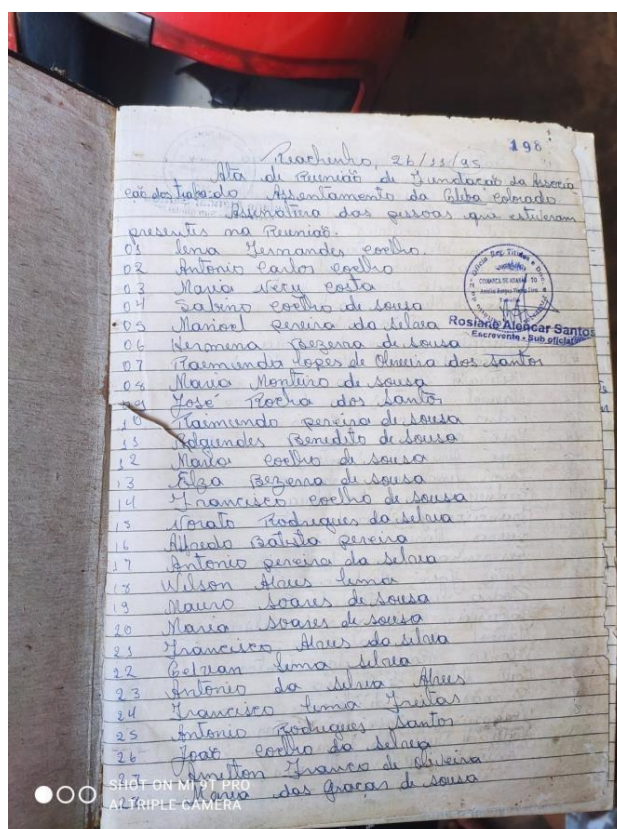 198
Riachinho, 26/11/95
Ata de Reunião de Fundação da Associa
ção dos trabado Assentamento da Gleba Colorado
Assinatura das pessoas que estiveram
presentis na Reunião.
01 lena Fernandes coelho.
02 Antonio Carlos coelho
03 Maria Necy costa
04 Sabino coelho de sousa
05 Manoel pereira da selvea
06 Hermena Bezerra de sousa
07 Raimunda Lopes de Oliveira dos santos
08 Maria Monteiro de sousa
09 José Rocha dos Santos
10 Raimundo pereira de sousa
11 Benedito de sousa
12 Maria coelho de sousa
13 Elza Bezerra de sousa
14 Francisco coelho de sousa
15 Norato Rodrigues da selvea
16 Alfredo Batista pereira
17 Antonio pereira da selvea
18 Wilson Alves lima
19 Mauro soares de sousa
20 Maria soares de sousa
21 Francisco Alves da silvea
22 lima silvea
23 Antonio da silvea Alves
24 Francisco lima Freitas
25 Antonio Rodrigues santos
26 João coelho da selvea
27 Amilton Franco de oliveira
28 Maria das Graças de sousa
COMARCA DE
Rosiane Alencar Santos
Escrevente - Sub oficial
SHOT ON MI 9T PRO
AI TRIPLE CAMERA